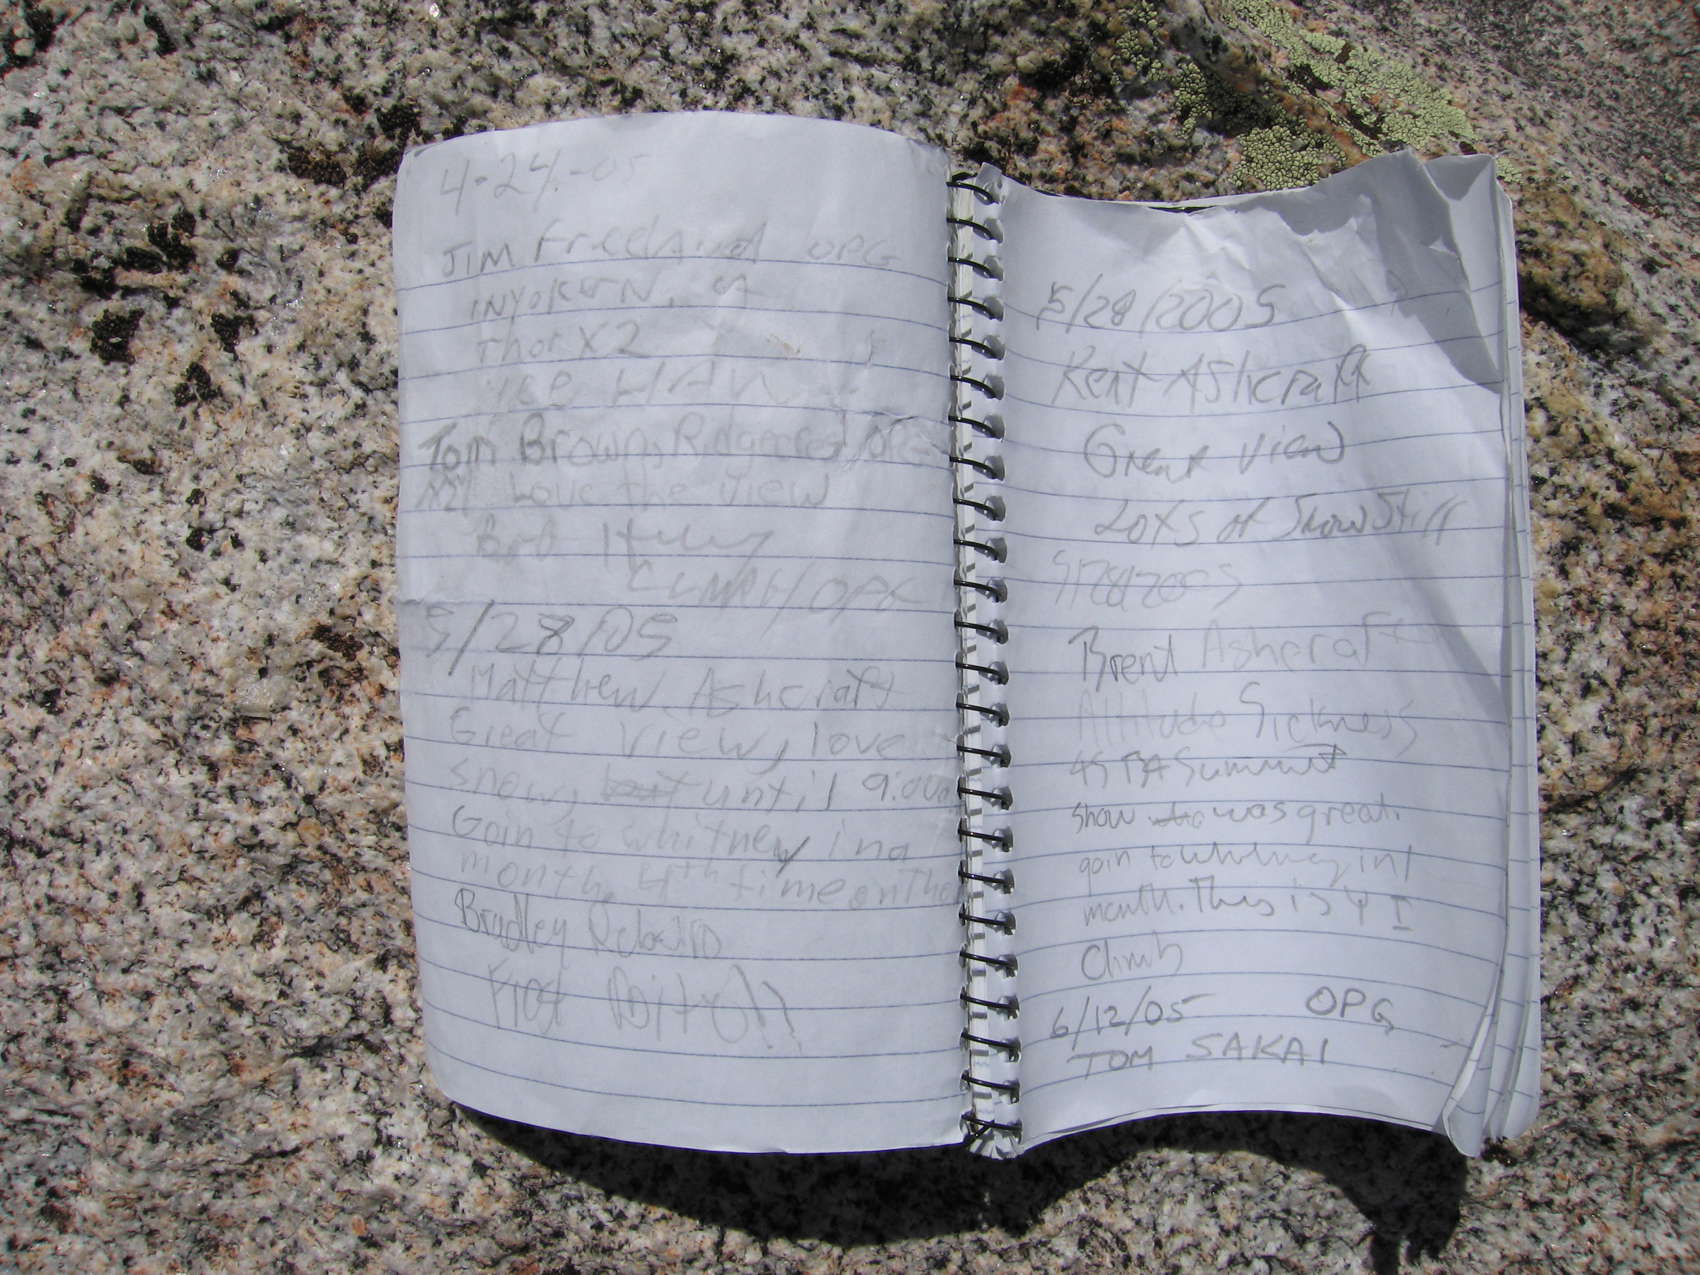 4-24-05
JIM Freeland OPG
INYOKERN, CA
Thor X2
Tom Brown, Ridgecrest/OPG
X2! Love the view
Bob
CLMRG/OPG
5/28/05
Matthew Ashcraft
Great view, love
snow, until 9:00
Goin to whitney in a
month, 4th time on Thor
Bradley
Frost Bite!!
5/28/2005
Kent Ashcraft
Great view
Lots of Snow Still
5/28/2005
Brent Ashcraft
Altitude Sickness
Summit
snow was great.
goin to whitney in 1
month. This is 4
Climb
6/12/05 OPG
TOM SAKAI